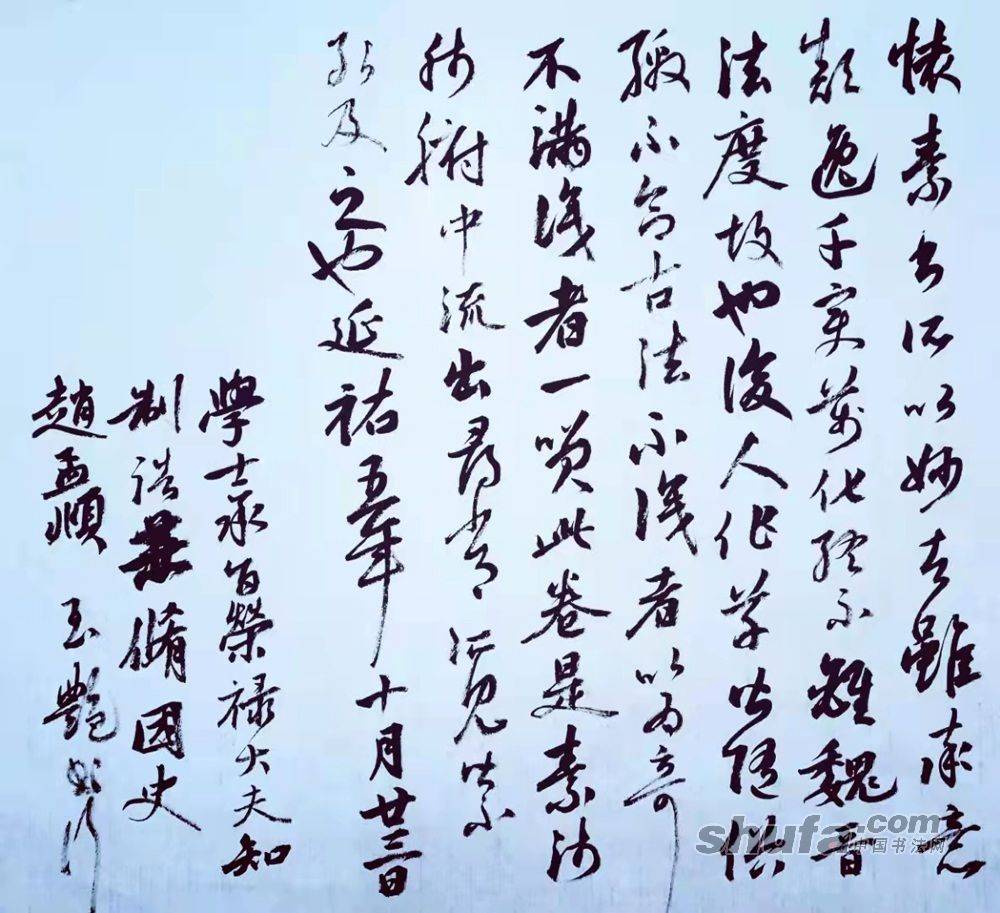 懐素書所以妙者雖率意
顛逸千變萬化終不離魏晉
法度故也後人作草皆随俗
繳不合古法不識者以為奇
不滿識者一笑此卷是素師
肺腑中流出尋常所見皆不
能及之也延祐五年十月廿三日
學士承旨榮禄大夫知
制誥兼脩国史
趙孟頫 玉艷
shufa.com
中国书法网